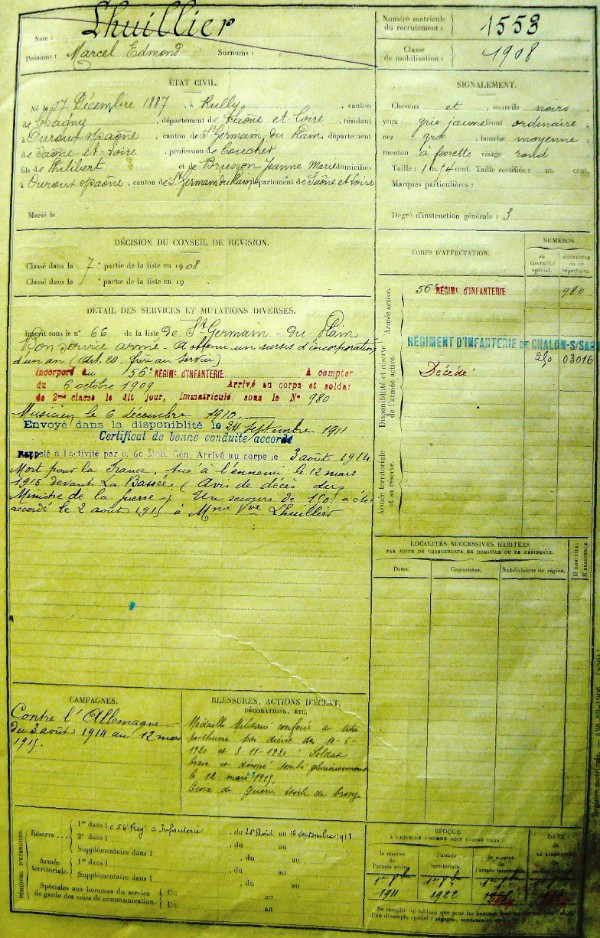 Nom : Lhuillier
Prénoms : Marcel Edmond Surnoms :
Numéro matricule du recrutement : 1553
Classe de mobilisation : 1908
ÉTAT CIVIL.
Né le 17 Décembre 1887, à Rully, canton
de Chagny, département de Saône et Loire, résidant
à Ouroux s/Saône, canton de St Germain du Plain, département
de Saône et Loire, profession de boucher
fils de Philibert et de Jeanne Marie domiciliés
à Ouroux s/Saône, canton de St Germain du Plain département de Saône et Loire
Marié le
SIGNALEMENT.
Cheveux et sourcils noirs
yeux gris jaune front ordinaire
nez gros, bouche moyenne
menton à fossette visage rond
Taille : 1 m. 74 cent. Taille rectifiée : m. cent.
Marques particulières :
Degré d'instruction générale : 3
DÉCISION DU CONSEIL DE RÉVISION.
Classé dans la 7e partie de la liste en 1908
Classé dans la e partie de la liste en 19
CORPS D'AFFECTATION.
NUMÉROS
Armée active.
56e RÉGIMt D'INFANTERIE 980
Disponibilité et réserve de l'armée active.
RÉGIMENT D'INFANTERIE DE CHALON-S/SAÔNE
03016
Décédé
Armée territoriale et sa réserve.
DÉTAIL DES SERVICES ET MUTATIONS DIVERSES.
Inscrit sous le n° 66 de la liste de St Germain-du Plain
Bon service armé - A obtenu un sursis d'incorporation
d'un an
Incorporé au 56e RÉGIMt D'INFANTERIE à compter
du 6 octobre 1909 Arrivé au corps et soldat
de 2me classe le dit jour, Immatriculé sous le No 980
Musicien le 6 décembre 1910
Envoyé dans la disponibilité le 24 septembre 1911
Certificat de bonne conduite accordé
Rappelé à l'activité par o. de Mob. Gén. Arrivé au corps le 3 août 1914
Mort pour la France, tué à l'ennemi le 12 mars
1915 devant La Bassée (Avis de décès du
Ministre de la guerre) Un secours de 150 a été
accordé le 2 août 1915 à Mme Vve Lhuillier
LOCALITÉS SUCCESSIVES HABITÉES
PAR SUITE DE CHANGEMENTS DE DOMICILE OU DE RÉSIDENCE.
Dates. Communes. Subdivisions de région.
CAMPAGNES.
Contre l'Allemagne
du 3 août 1914 au 12 mars
1915.
BLESSURES, ACTIONS D'ÉCLAT,
DÉCORATIONS, ETC.
Médaille Militaire conférée à titre
posthume par décret du 14-6-
1920 - Soldat
brave et dévoué tombé glorieusement
le 12 mars 1915.
Croix de Guerre étoile de bronze
PÉRIODES D'EXERCICES.
Réserve
1re dans le 56e Rég. d'Infanterie, du 25 Août au 16 septembre 1913
2e dans l , du au
Supplémentaire dans l , du au
Armée territoriale
1re dans l , du au
Supplémentaire dans l , du au
Spéciales aux hommes du service de garde des voies de communication.
Du au
Du au
ÉPOQUE
la réserve de l'armée active
l'armée territoriale.
la réserve de l'armée territoriale
1911 1922